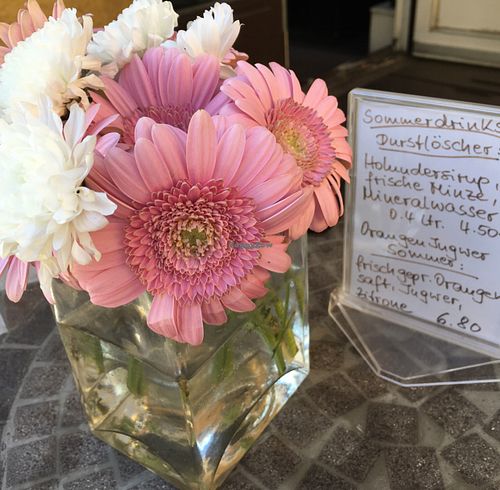 Sommerdrinks
Durstlöscher:
Holundersirup
frische Minze,
Mineralwasser
0.4 Ltr. 4.50
Orangen Ingwer
Sommer:
frisch gepr. Orangen
saft, Ingwer,
Zitrone 6.80